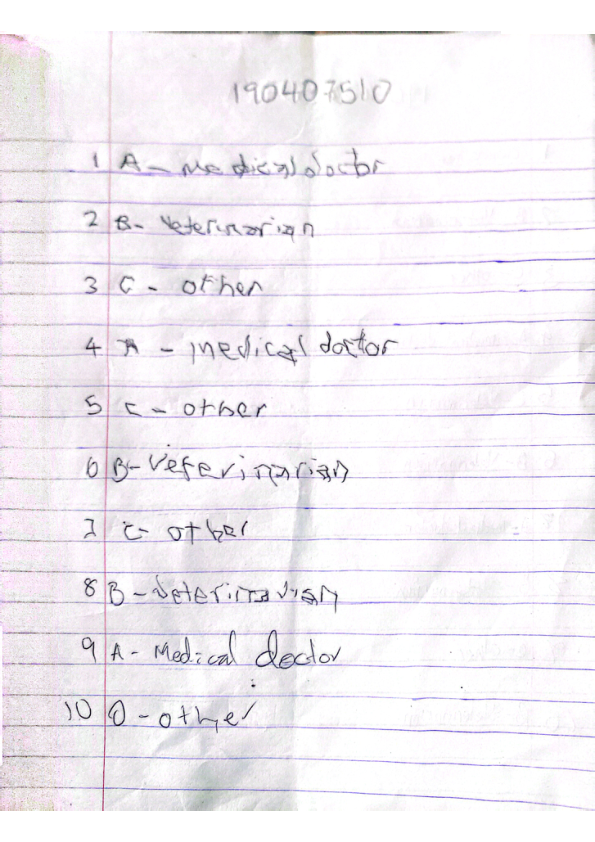 190407510
1 A - Medical doctor
2 B- Veterinarian
3 C - other
4 A - medical doctor
5 C - other
6 B- Veterinarian
7 C- other
8 B - Veterinarian
9 A - Medical doctor
10 O - other